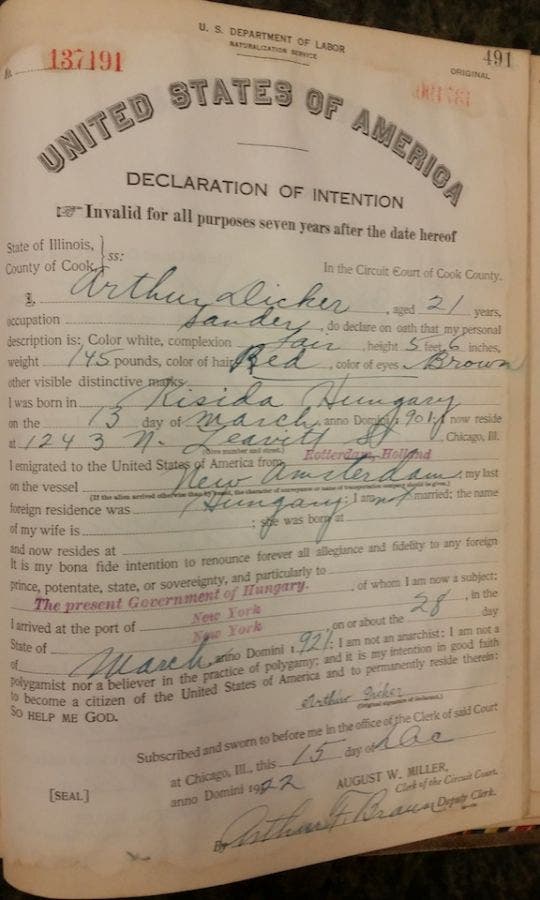 U. S. DEPARTMENT OF LABOR
NATURALIZATION SERVICE
No. 137191
491
ORIGINAL
UNITED STATES OF AMERICA
DECLARATION OF INTENTION
☞ Invalid for all purposes seven years after the date hereof
State of Illinois,
County of Cook, } ss:
In the Circuit Court of Cook County.
I, Arthur Dicker, aged 21 years,
occupation Sander, do declare on oath that my personal
description is: Color white, complexion fair, height 5 feet 6 inches,
weight 145 pounds, color of hair Red, color of eyes Brown
other visible distinctive marks
I was born in Kisida Hungary
on the 13 day of March, anno Domini 1901; now reside
at 1243 N. Leavitt St, Chicago, Ill.
(Give number and street.)
I emigrated to the United States of America from Rotterdam, Holland
on the vessel New Amsterdam; my last
(If the alien arrived otherwise than by vessel, the character of conveyance or name of transportation company should be given.)
foreign residence was Hungary; I am not married; the name
of my wife is ; she was born at
and now resides at
It is my bona fide intention to renounce forever all allegiance and fidelity to any foreign
prince, potentate, state, or sovereignty, and particularly to
The present Government of Hungary. , of whom I am now a subject:
I arrived at the port of New York, in the
State of New York, on or about the 28 day
of March, anno Domini 1921: I am not an anarchist: I am not a
polygamist nor a believer in the practice of polygamy; and it is my intention in good faith
to become a citizen of the United States of America and to permanently reside therein:
SO HELP ME GOD.
Arthur Dicker
(Original signature of declarant.)
Subscribed and sworn to before me in the office of the Clerk of said Court
at Chicago, Ill., this 15 day of Dec
anno Domini 1922
[SEAL]
AUGUST W. MILLER,
Clerk of the Circuit Court.
By Arthur F. Braun Deputy Clerk.